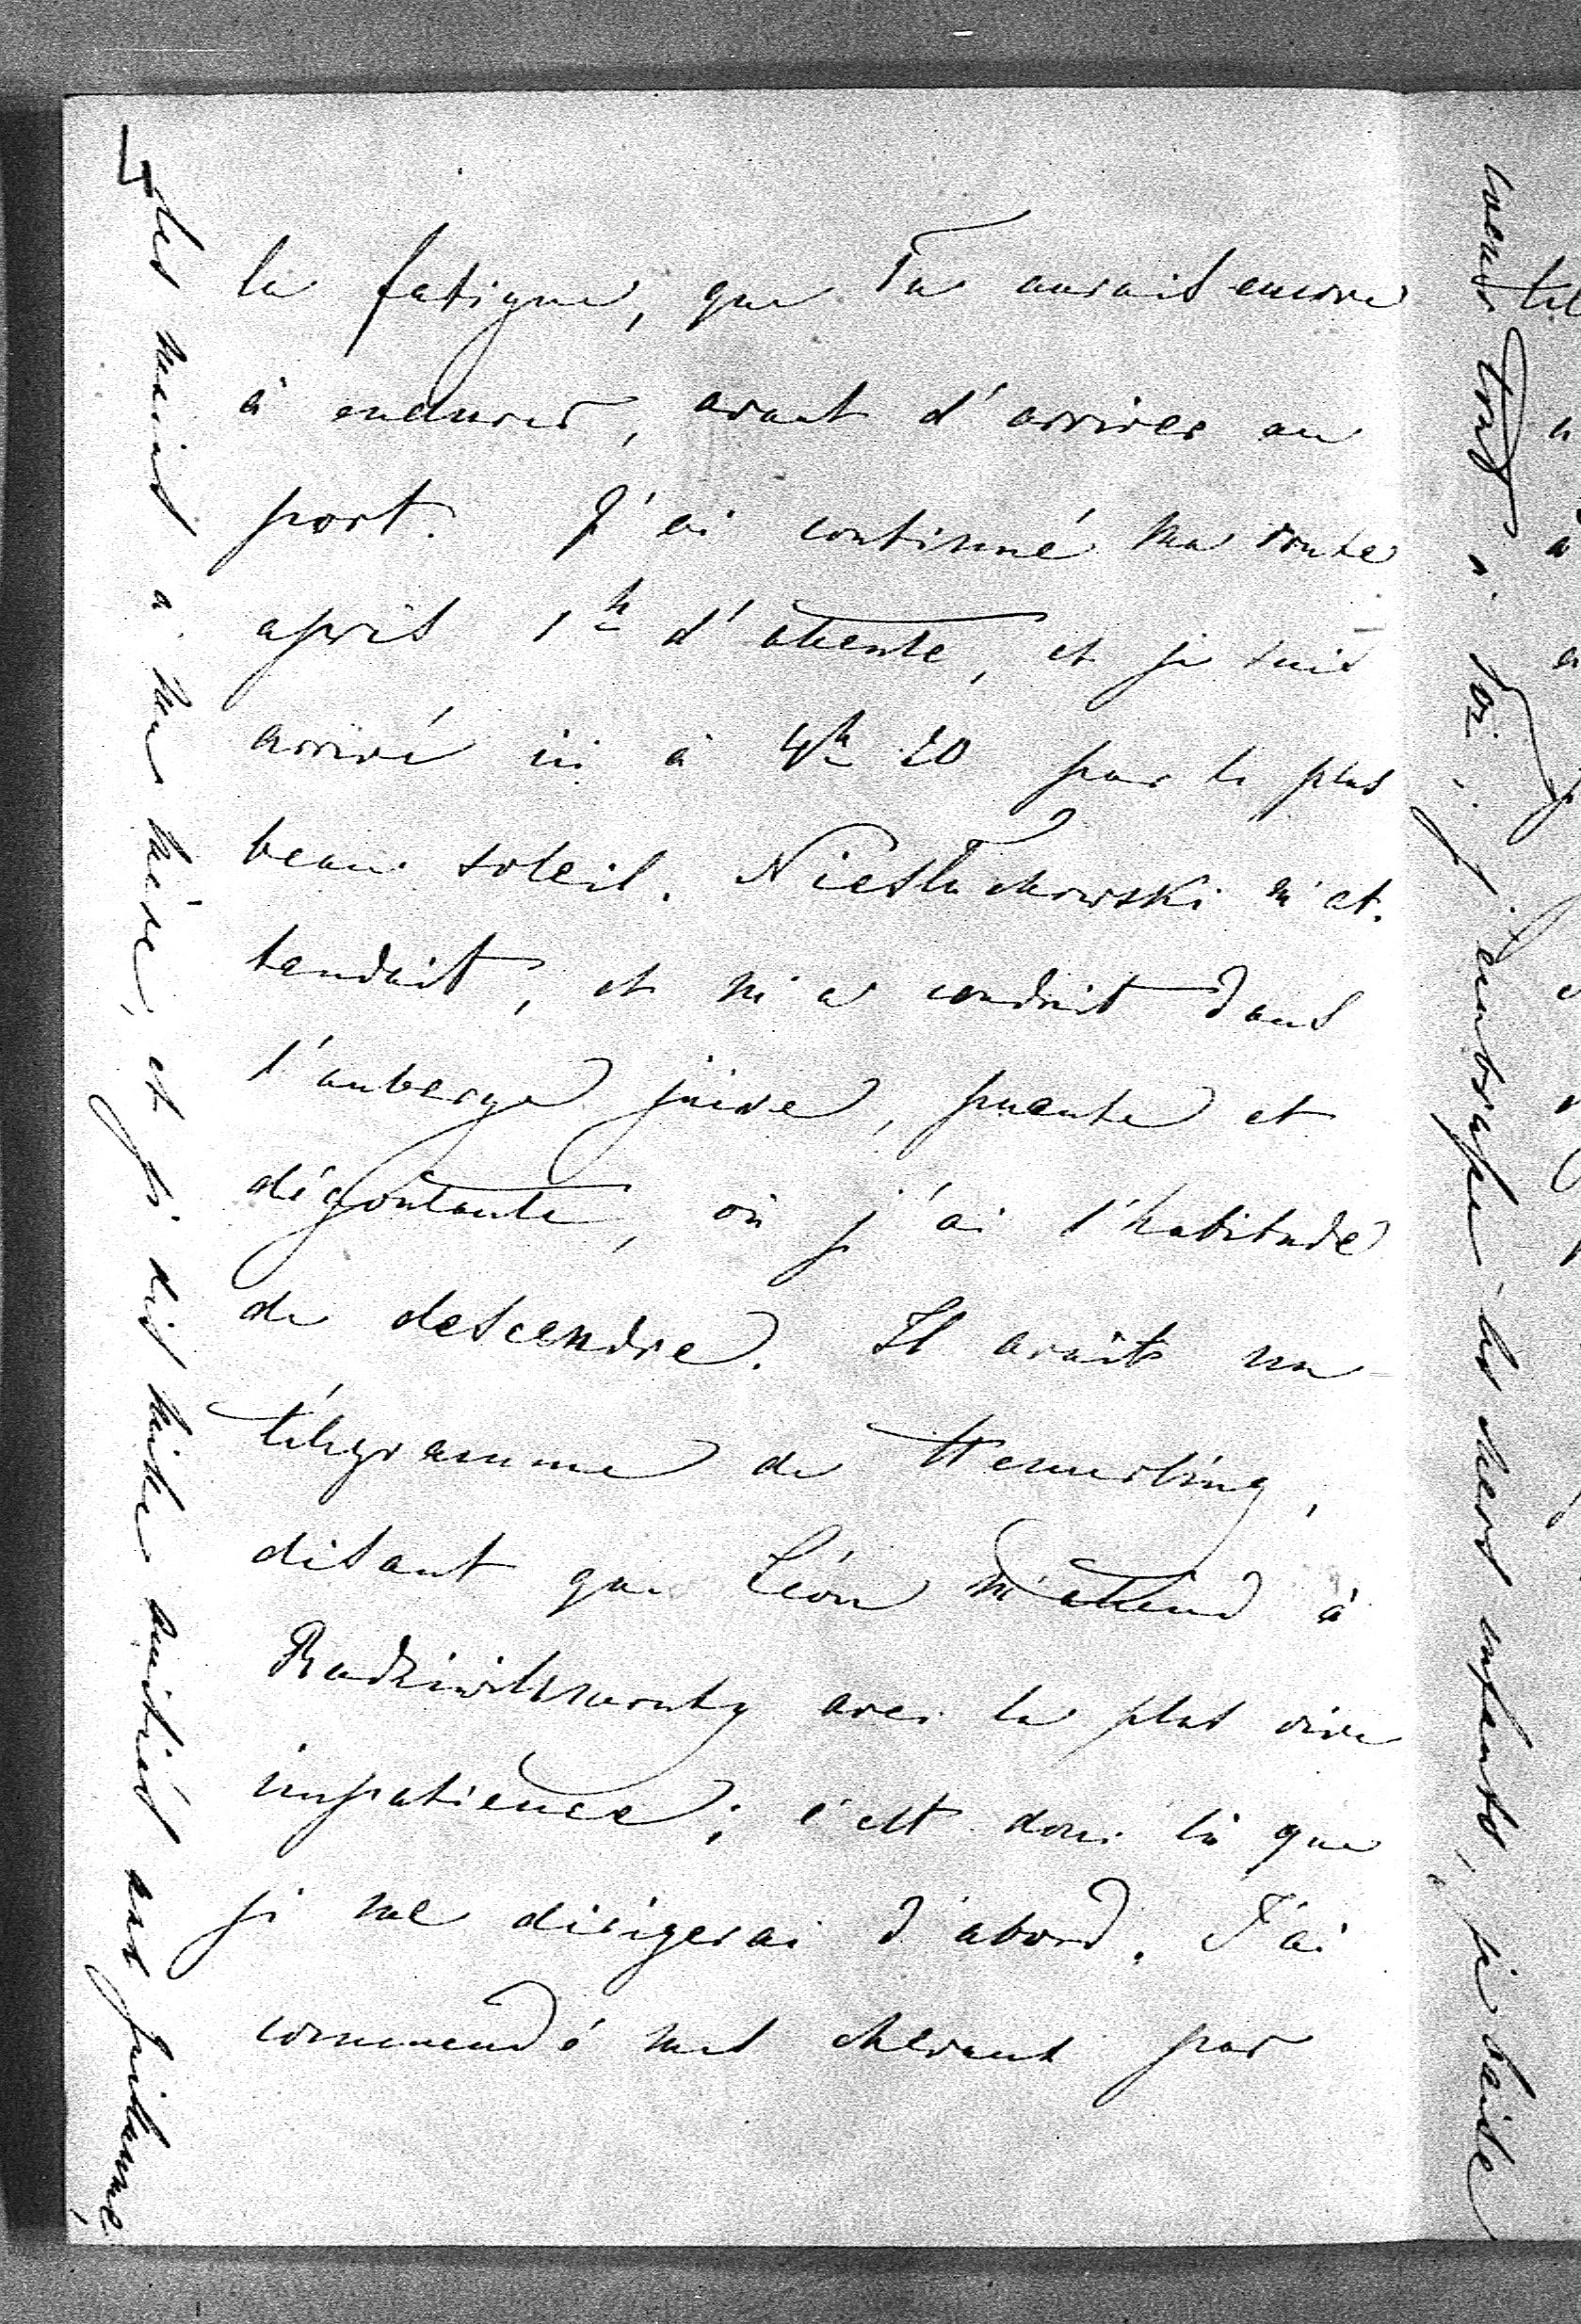 4
la fatigue, que Tu aurais encore
à endurer, avant d'arriver au
port. J'ai continué ma route
après 1h d'attente, et je suis
arrivé ici à 4h 20 par le plus
beau soleil. Niesluchowski m'at-
tendait, et m'a conduit dans
l'auberge juive, puante et
dégoutante, où j'ai l'habitude
de descendre. Il avait un
télégramme de
disant que Léon m'attend à
avec la plus vive
impatience; c'est donc là que
je me dirigerai d'abord. J'ai
commendé mes chevaux pour
les mains à ma mère, et je dis mille amitiés aux
coeur tout à Toi, j'embrasse les chers enfants, je baise